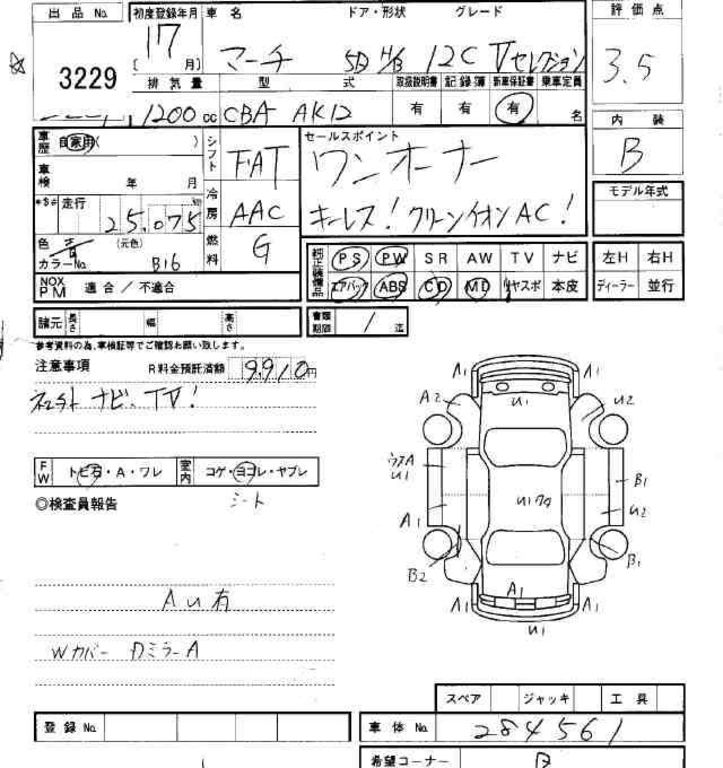 出品 No. 初度登録年月 車名 ドア・形状 グレード 評価点
3229 17 [ 月] マーチ 5D H/B 12C Vセレクション 3.5
排気量 型式 取扱説明書 記録簿 新車保証書 乗車定員
1200 cc CBA AK12 有 有 有 名
内装
B
車歴 自家用( ) シフト FAT セールスポイント
ワンオーナー
車検 年 月 冷房 AAC
*$# 走行 km 25,075
キーレス! クリーンイオンAC!
モデル年式
色 青 (元色) 燃料 G
カラーNo. B16
純正装備品 PS PW SR AW TV ナビ 左H 右H
エアバック ABS CD MD リヤスポ 本皮 ディーラー 並行
NOX PM 適合 / 不適合
諸元 長さ 幅 高さ 書類期限 / 迄
参考資料の為、車検証等でご確認お願い致します。
注意事項 R料金預託済額 9,910円
ナビ、TV!
FW トビ石・A・ワレ 室内 コゲ・ヨゴレ・ヤブレ
◎検査員報告 シート
A1 A1
A2 U1 U2
U1 B1
A1 U2
B2 B1
A1
A1 A1
U1
AU有
Wカバー DミラーA
スペア ジャッキ 工具
登録 No. 車体 No. 284561
希望コーナー